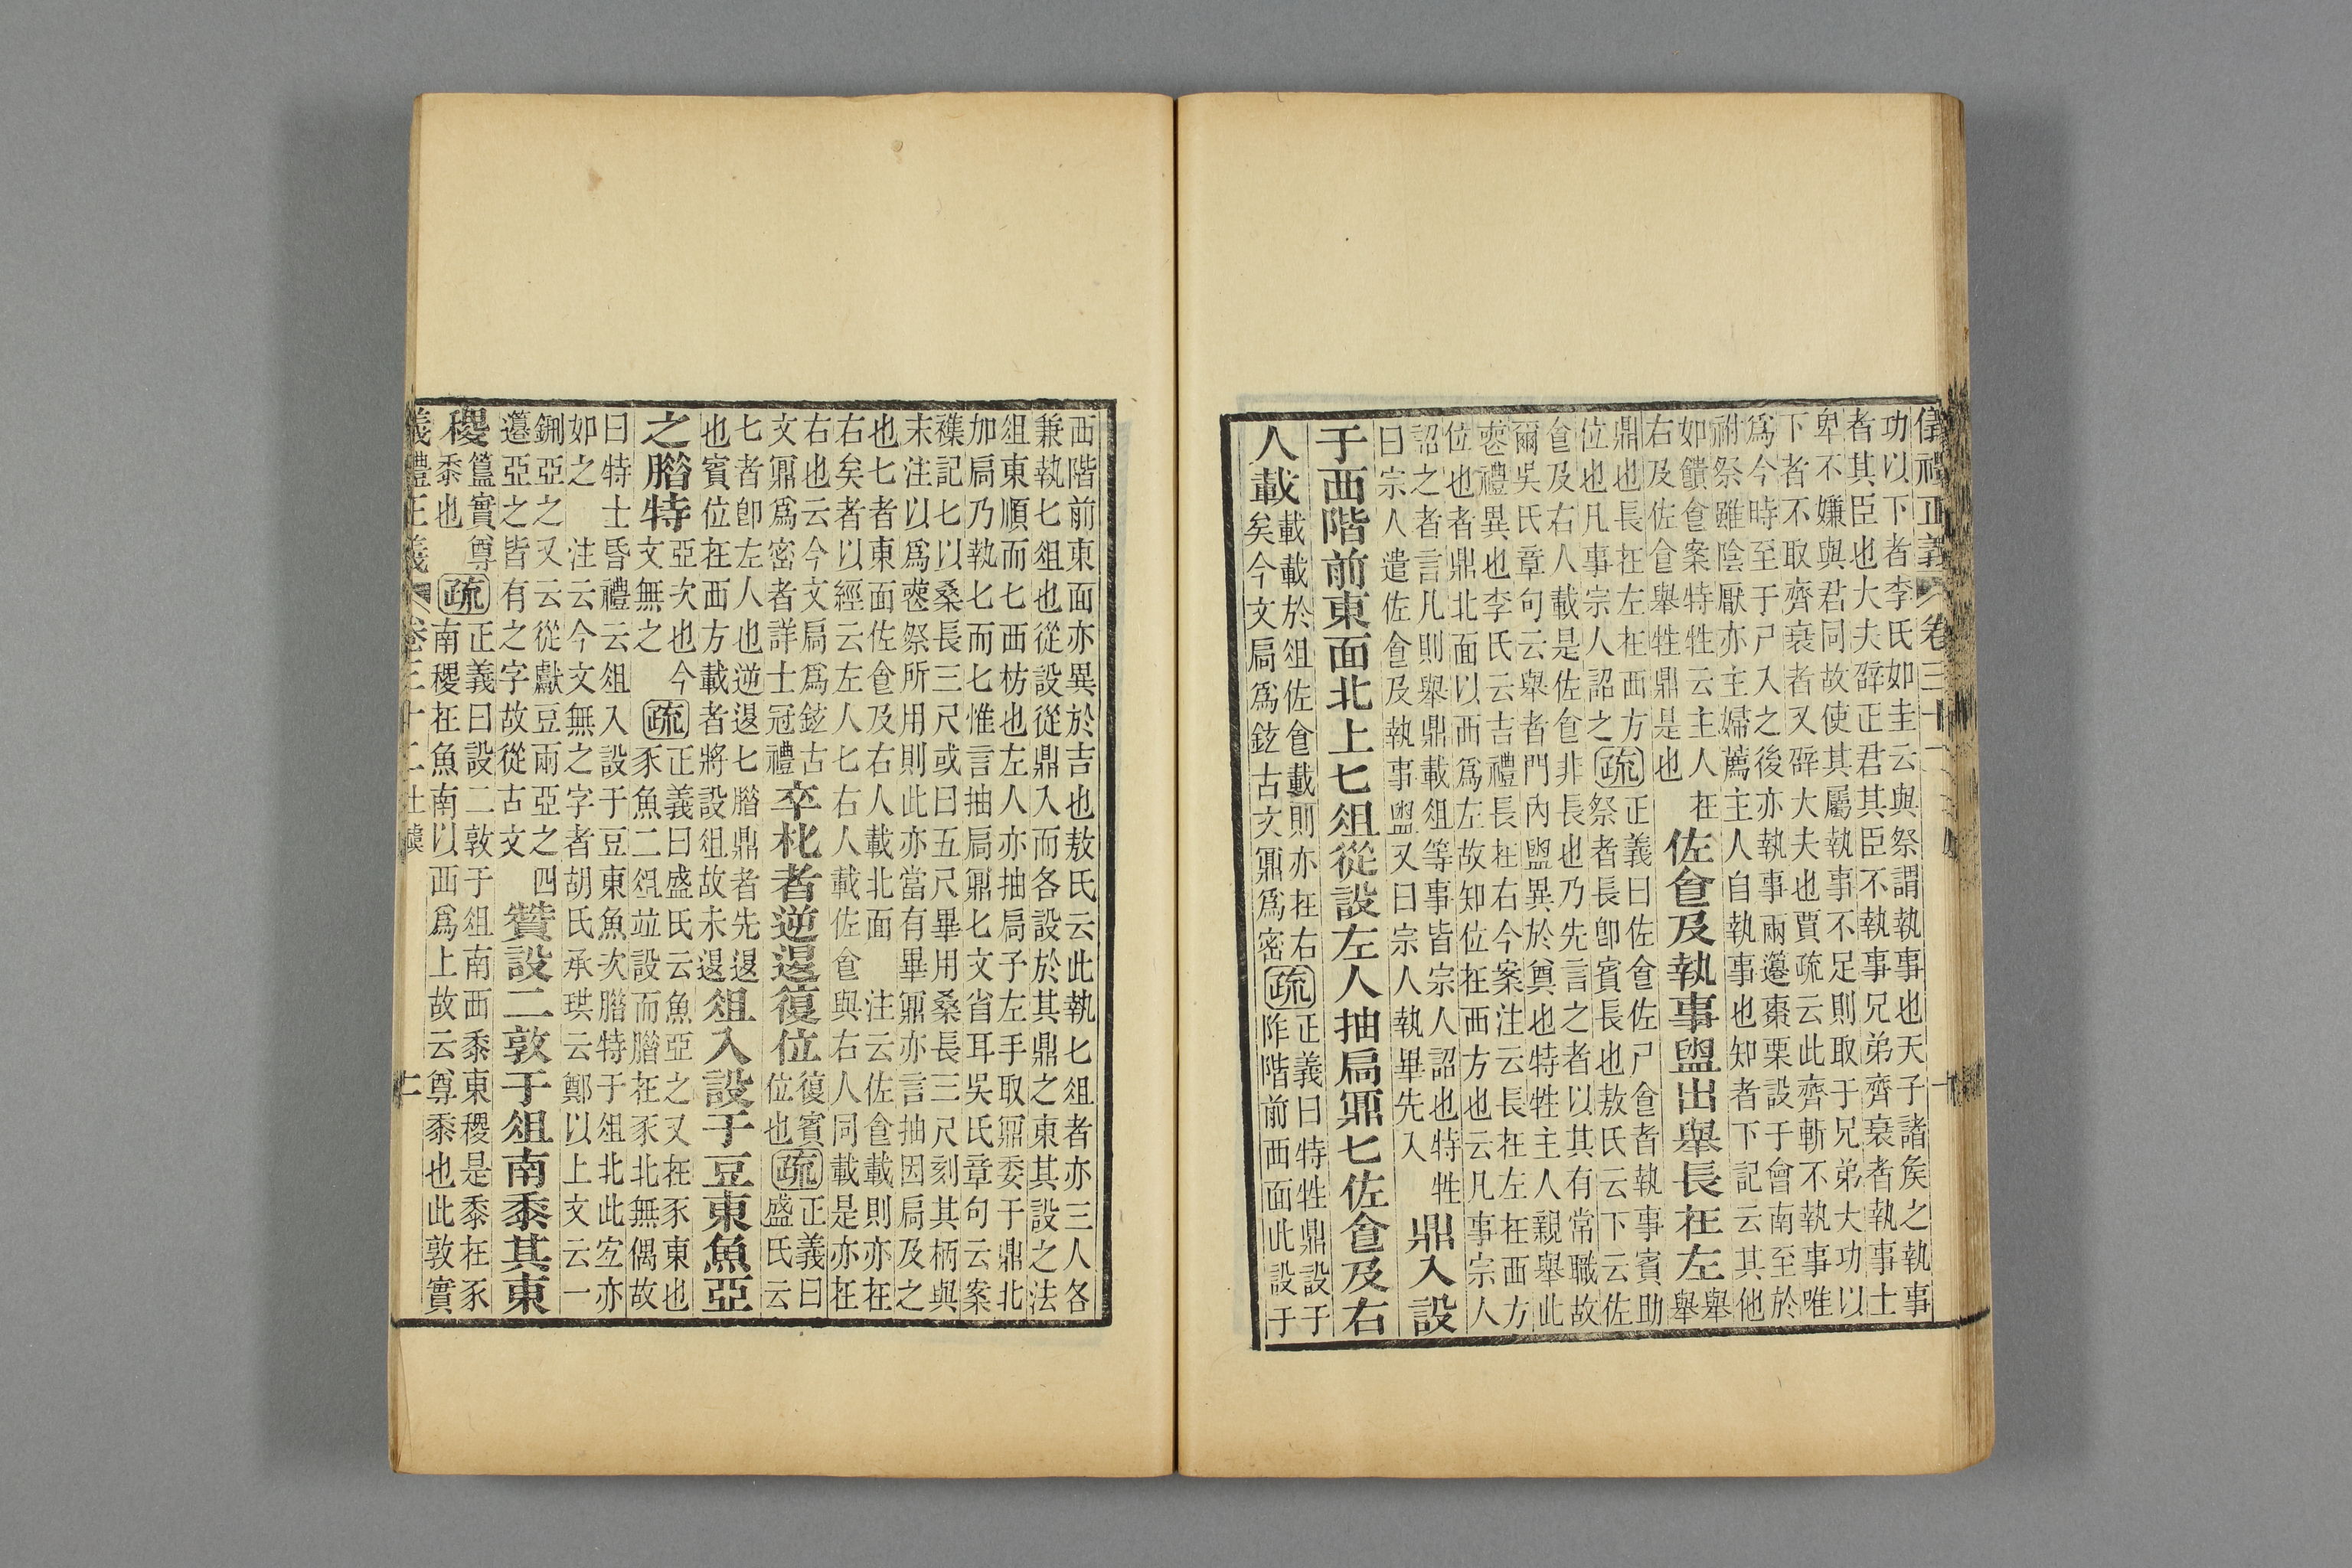 儀禮正義 卷三十二
功以下者李氏如圭云與祭謂執事也天子諸矦之執事
者其臣也大夫辟正君其臣不執事兄弟齊衰者執事士
卑不嫌與君同故使其屬執事不足則取于兄弟大功以
下者不取齊衰者又辟大夫也賈疏云此齊斬不執事唯
爲今時至于尸入之後亦執事兩籩棗栗設于會南至於
祔祭雖陰厭亦主婦薦主人自執事也知者下記云其他
如饋食案特牲云主人在
右及佐食舉牲鼎是也
佐食及執事盥出舉長在左
舉
舉
鼎也長在左在西方
位也凡事宗人詔之
疏
正義曰佐食佐尸食者執事賓助
祭者長卽賓長也敖氏云下云佐
食及右人載是佐食非長也乃先言之者以其有常職故
爾吳氏章句云舉者門內盥異於奠也特牲主人親舉此
䘮禮異也李氏云吉禮長在右今案注云長在左在西方
位也者鼎北面以西爲左故知位在西方也云凡事宗人
詔之者言凡則舉鼎載俎等事皆宗人詔也特牲
曰宗人遣佐食及執事盥又曰宗人執畢先入
鼎入設
于西階前東面北上匕俎從設左人抽扃鼏匕佐食及右
人載
載載於俎佐食載則亦在右
矣今文扃爲鉉古文鼏爲密
疏
正義曰特牲鼎設于
阼階前西面此設于
西階前東面亦異於吉也敖氏云此執匕俎者亦三人各
兼執匕俎也從設從鼎入而各設於其鼎之東其設之法
俎東順而匕西枋也左人亦抽扃予左手取鼏委于鼎北
加扃乃執匕而匕惟言抽扃鼏匕文省耳吳氏章句云案
襍記匕以桑長三尺或曰五尺畢用桑長三尺刻其柄與
末注以爲䘮祭所用則此亦當有畢鼏亦言抽因扃及之
也匕者東面佐食及右人載北面 注云佐食載則亦在
右矣者以經云左人匕右人載佐食與右人同載是亦在
右也云今文扃爲鉉古
文鼏爲密者詳士冠禮
卒朼者逆退復位
復賓
位也
疏
正義曰
盛氏云
匕者卽左人也逆退匕腊鼎者先退
也賓位在西方載者將設俎故未退
俎入設于豆東魚亞
之腊特
亞次也今
文無之
疏
正義曰盛氏云魚亞之又在豕東也
豕魚二俎竝設而腊在豕北無偶故
曰特士昏禮云俎入設于豆東魚次腊特于俎北此宐亦
如之 注云今文無之字者胡氏承珙云鄭以上文云一
鉶亞之又云從獻豆兩亞之四
籩亞之皆有之字故從古文
贊設二敦于俎南黍其東
稷
簋實尊
黍也
疏
正義曰設二敦于俎南西黍東稷是黍在豕
南稷在魚南以西爲上故云尊黍也此敦實
義禮正義 卷三十二士虞